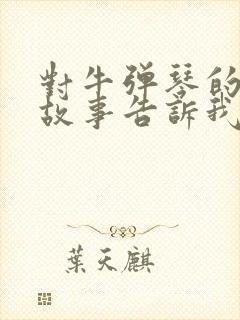 對牛弹琴的
故事告訴我
葉天麒